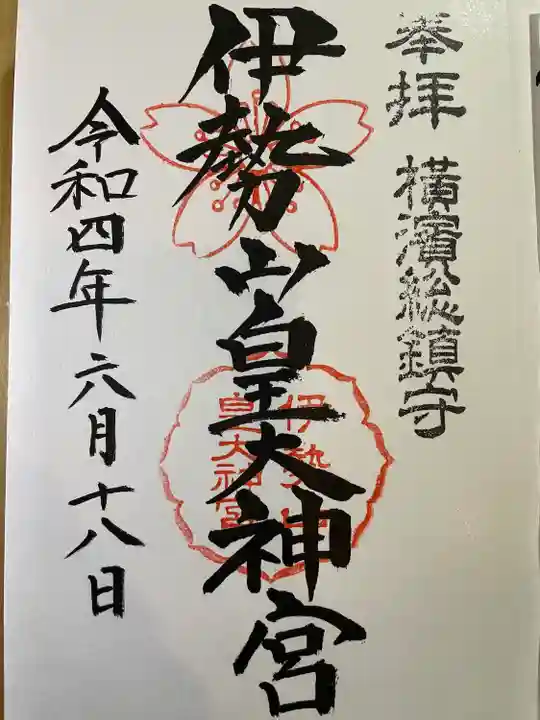 奉拝 横濱総鎮守
伊勢山皇大神宮
伊勢山
皇大神宮
令和四年六月十八日